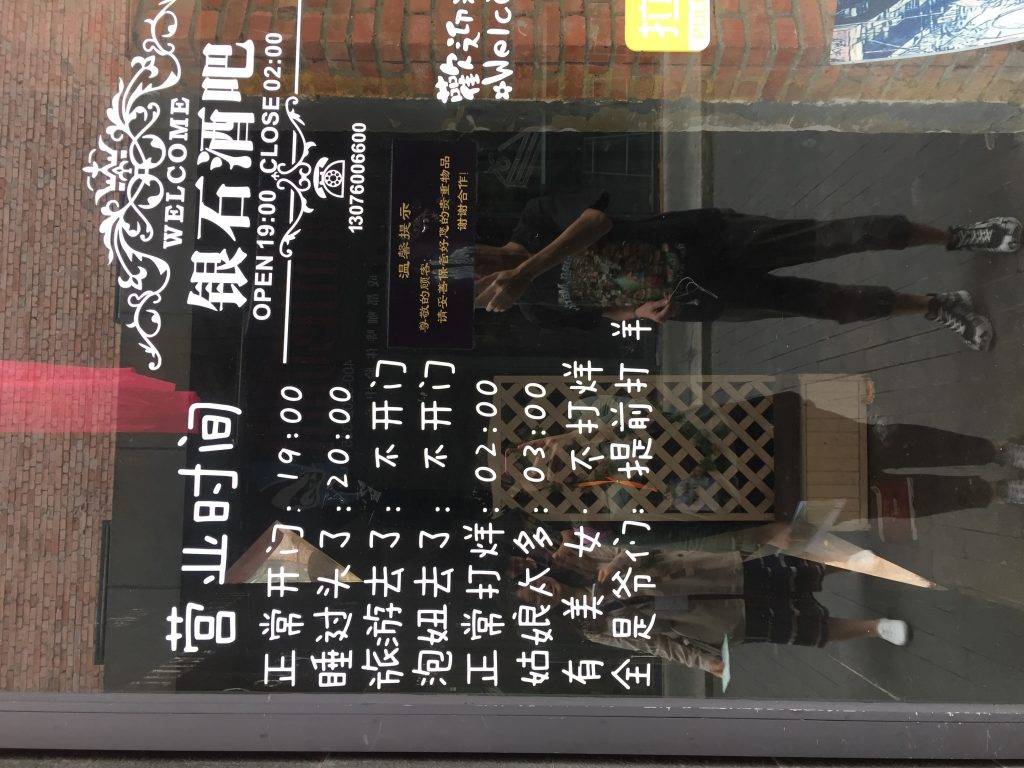 WELCOME
银石酒吧
OPEN 19:00 CLOSE 02:00
13076006600
温馨提示
尊敬的顾客:
请妥善保管好您的贵重物品
谢谢合作!
营业时间
正常开门: 19:00
睡过头了: 20:00
旅游去了: 不开门
泡妞去了: 不开门
正常打烊: 02:00
姑娘太多: 03:00
有美女: 不打烊
全是爷们: 提前打烊
歡迎
Welco
拉